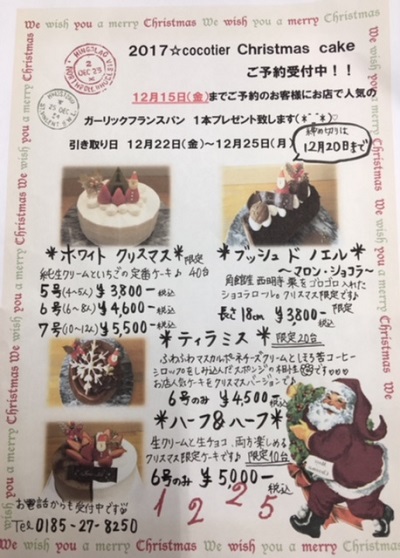 We wish you a merry Christmas We wish you a merry Christmas
2017☆cocotier Christmas cake
ご予約受付中！！
12月15日(金)までご予約のお客様にお店で人気の
ガーリックフランスパン 1本プレゼント致します(*^^*)♡
引き取り日 12月22日(金)～12月25日(月)
締め切りは
12月20日まで
*ホワイト クリスマス* 限定
純生クリームといちごの定番ケーキ♪ 40台
5号(4~5人) ¥3,800-税込
6号(6~8人) ¥4,600-税込
7号(10~12人) ¥5,500-税込
*ブッシュ ド ノエル*
～マロン・ショコラ～
角館産 西明寺 栗をゴロゴロ入れた
ショコラロールのクリスマス限定です♪
長さ18cm ¥3800-税込 限定
*ティラミス* 限定20台
ふわふわマスカルポーネチーズクリームとほろ苦コーヒー
シロップをしみ込んだスポンジの相性◎です♡♡♡
お店人気ケーキをクリスマスバージョンで♪
6号のみ ¥4,500税込
*ハーフ&ハーフ*
生クリームと生チョコ、両方楽しめる
クリスマス限定ケーキです 限定10台
6号のみ ¥5000-税込
1 2 2 5
お電話からも受付中です♡
Tel 0185-27-8250